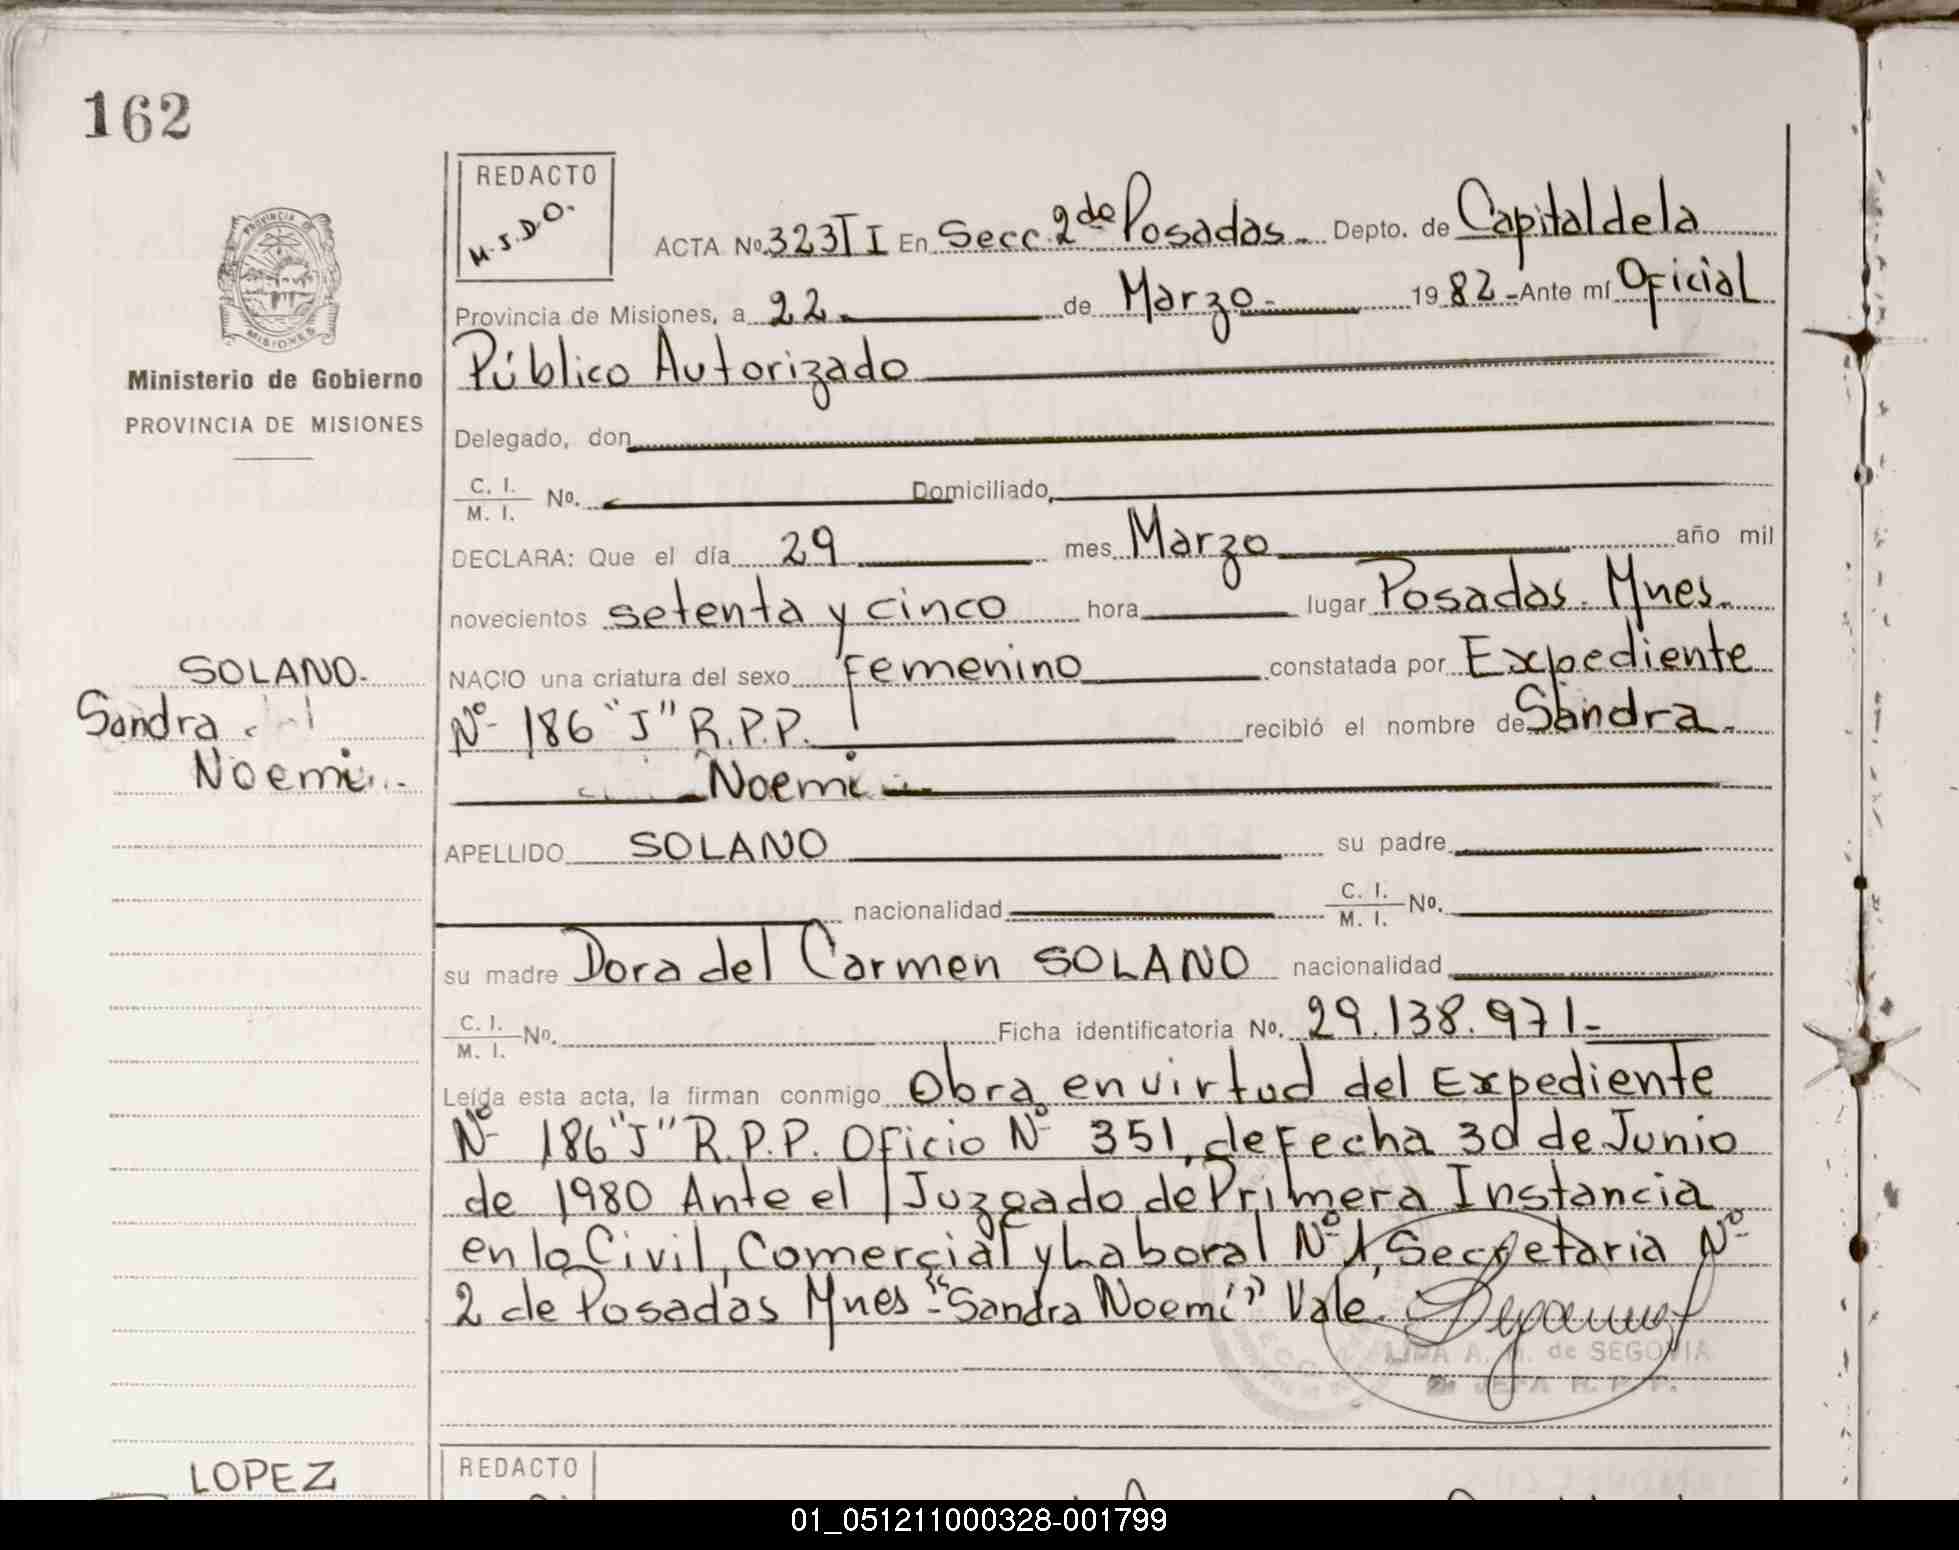 162
REDACTO
M.S.D.O.
ACTA No. 323 T I En Secc. 2da Posadas. Depto. de Capital de la
Provincia de Misiones, a 22 de Marzo 1982 - Ante mí Oficial
Público Autorizado
Ministerio de Gobierno
PROVINCIA DE MISIONES
Delegado, don
C. I. / M. I. No. Domiciliado,
DECLARA: Que el día 29 mes Marzo año mil
novecientos setenta y cinco hora lugar Posadas. Mnes.
NACIO una criatura del sexo Femenino constatada por Expediente
Nº 186 "J" R.P.P. recibió el nombre de Sandra.
Noemi
SOLANO.
Sandra
Noemi.
APELLIDO SOLANO su padre
nacionalidad C. I. / M. I. No.
su madre Dora del Carmen SOLANO nacionalidad
C. I. / M. I. No. Ficha identificatoria No. 29.138.971-
Leída esta acta, la firman conmigo Obra en virtud del Expediente
Nº 186 "J" R.P.P. Oficio Nº 351, de Fecha 30 de Junio
de 1980 Ante el Juzgado de Primera Instancia
en lo Civil, Comercial y Laboral Nº 1, Secretaria Nº
2 de Posadas Mnes - "Sandra Noemí" Vale.
LIMA A. M. de SEGOVIA
JEFA R. P. P.
LOPEZ
REDACTO
01_051211000328-001799